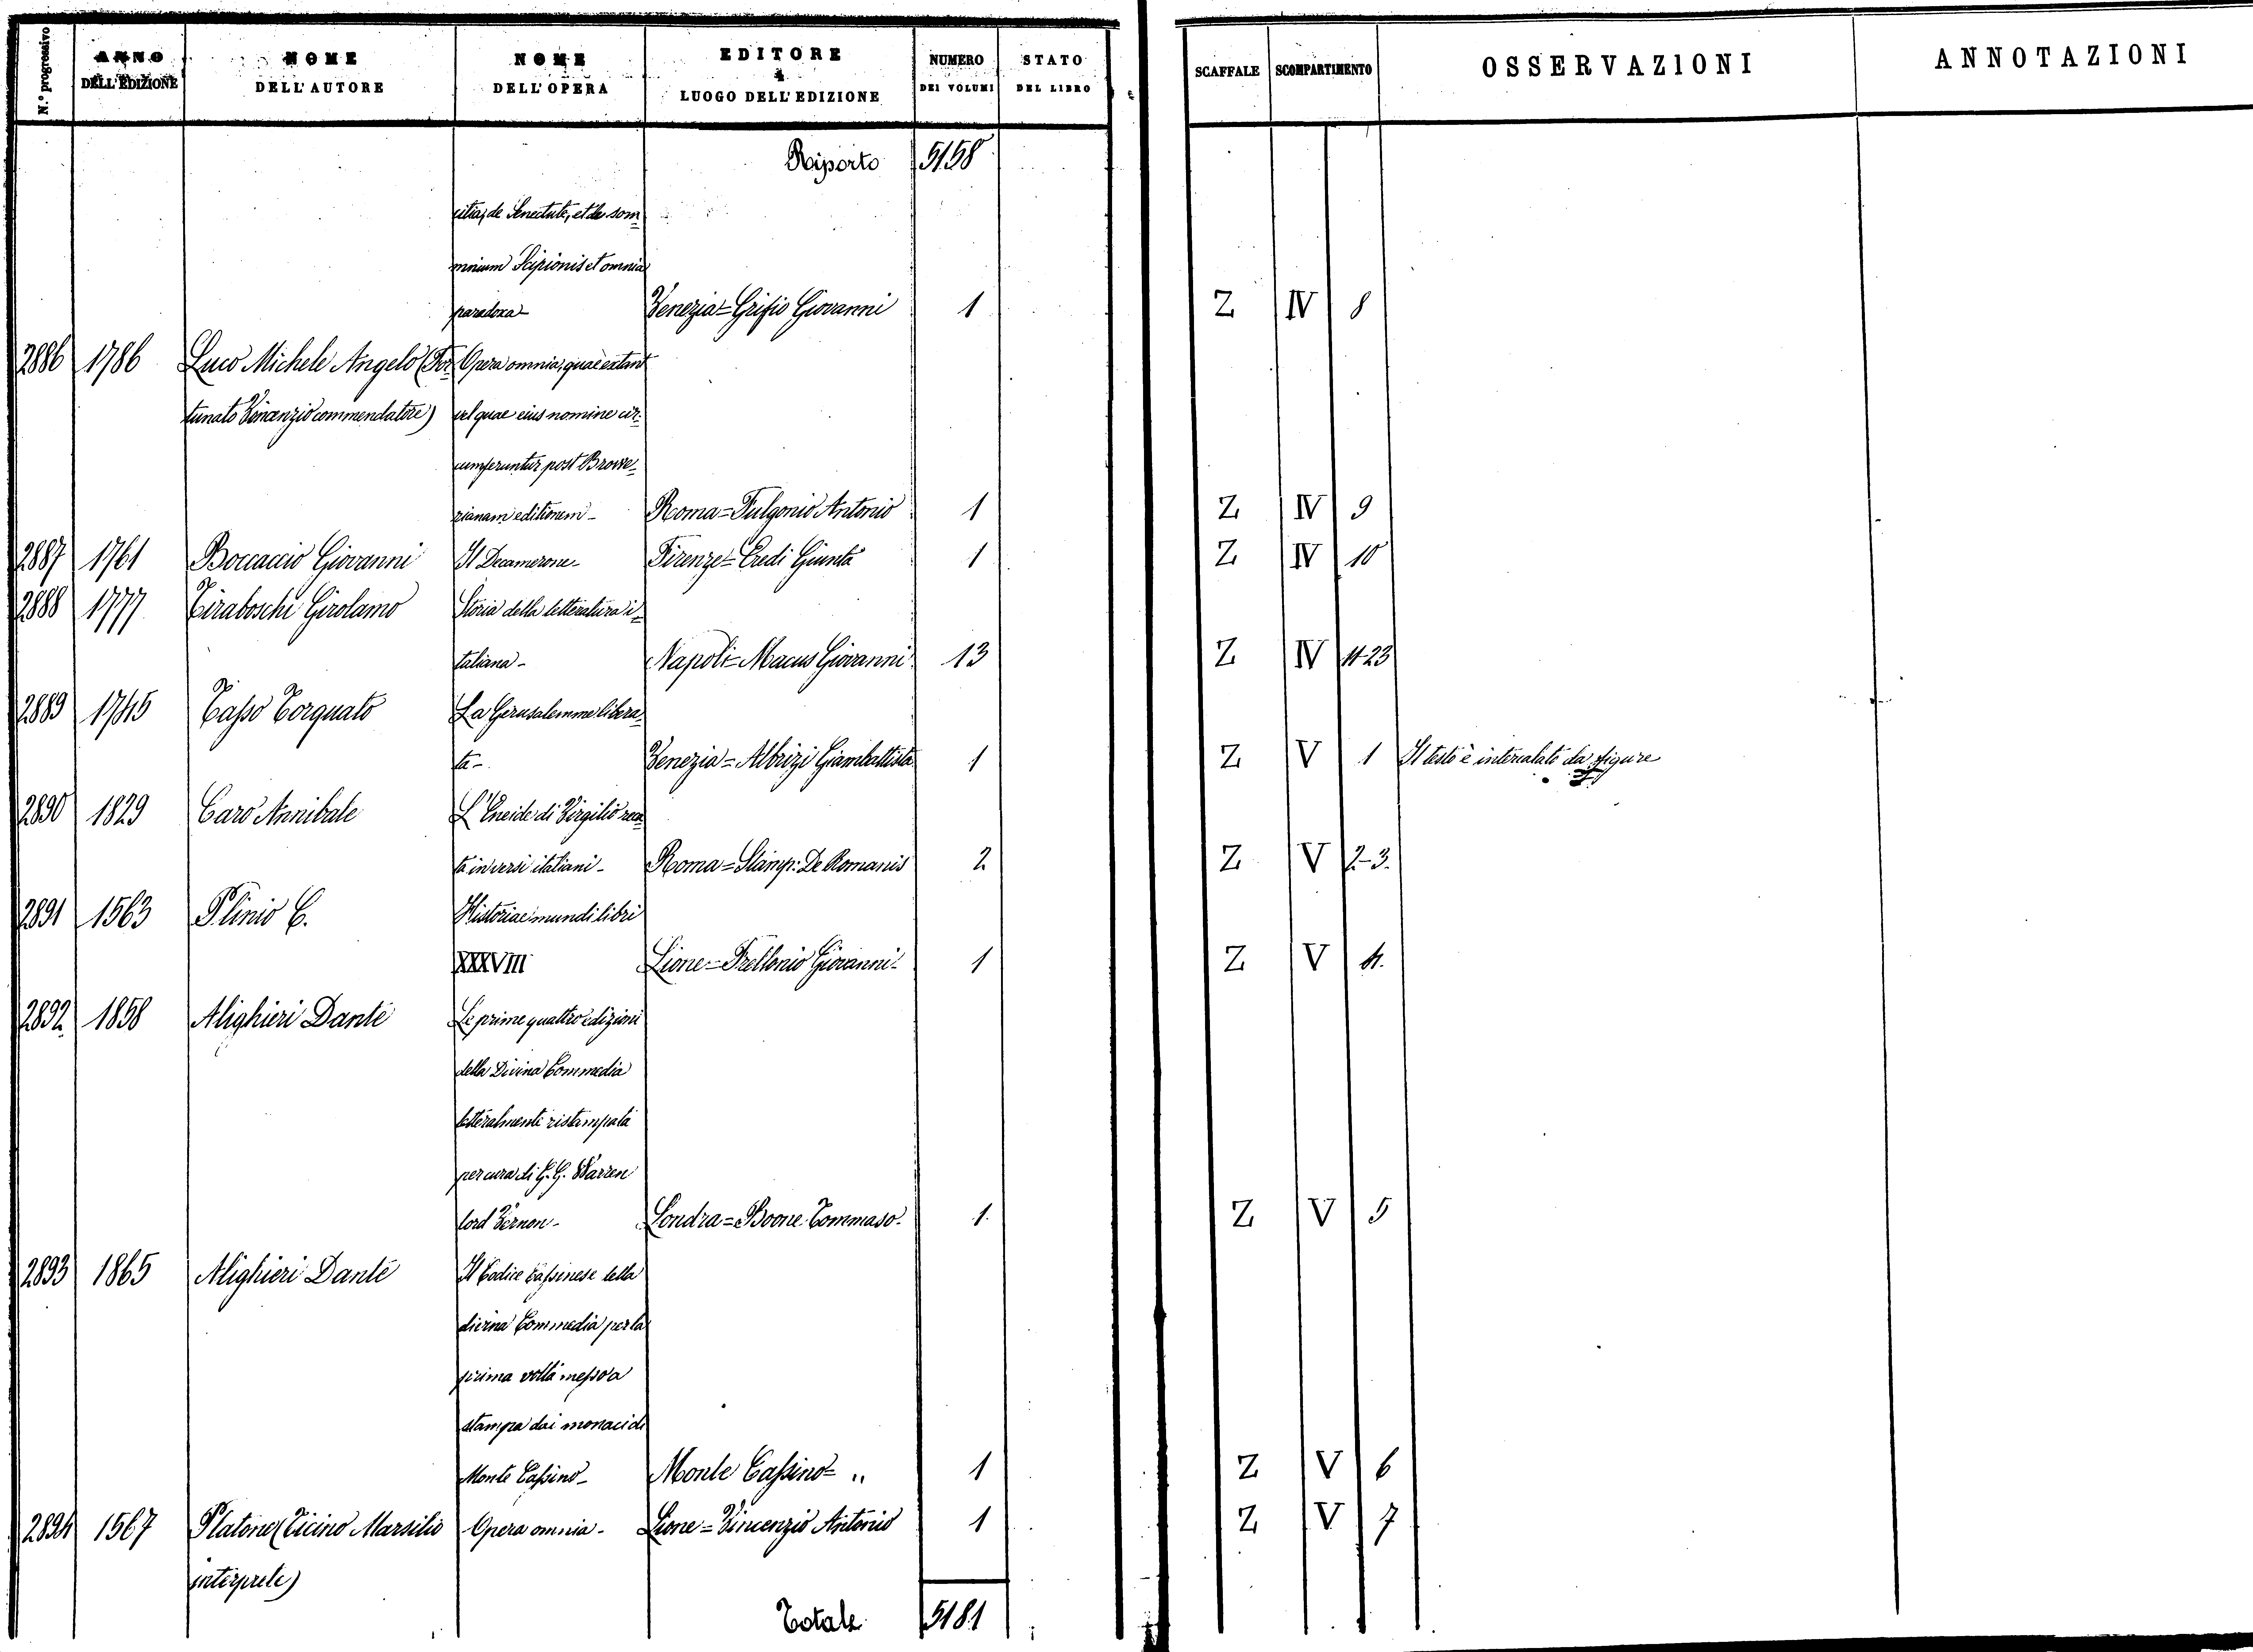 N.º progressivo ANNO DELL'EDIZIONE NOME DELL'AUTORE NOME DELL'OPERA EDITORE & LUOGO DELL'EDIZIONE NUMERO DEI VOLUMI STATO DEL LIBRO SCAFFALE SCOMPARTIMENTO OSSERVAZIONI ANNOTAZIONI
Riporto 5158
citia, de Senectute, et de som=
mnium Scipionis et omnia
paradoxa - Venezia = Grifio Giovanni 1 Z IV 8
2886 1786 Luco Michele Angelo (For= Opera omnia, quae extant
tunato Vincenzio commendatore) vel quae eius nomine cir=
cumferuntur post Browe=
rianam editionem - Roma = Fulgonio Antonio 1 Z IV 9
2887 1761 Boccaccio Giovanni Il Decamerone - Firenze = Eredi Giunta 1 Z IV 10
2888 1777 Tiraboschi Girolamo Storia della letteratura i=
taliana - Napoli = Macus Giovanni 13 Z IV 11-23
2889 1745 Tasso Torquato La Gerusalemme libera=
ta - Venezia = Albrizi Giambattista 1 Z V 1 Il testo è intercalato da figure
2890 1829 Caro Annibale L'Eneide di Virgilio reca
ta in versi italiani - Roma = Stamp: De Romanis 2 Z V 2-3.
2891 1563 Plinio C. Historiae mundi libri
XXXVIII Lione = Frellonio Giovanni - 1 Z V 4.
2892 1858 Alighieri Dante Le prime quattro edizioni
della Divina Commedia
letteralmente ristampata
per cura di G. G. Warren
lord Vernon - Londra = Boone Tommaso - 1. Z V 5
2893 1865 Alighieri Dante Il Codice Cassinese della
divina Commedia per la
prima volta messo a
stampa dai monaci di
Monte Cassino - Monte Cassino = " 1 Z V 6
2894 1567 Platone (Ficino Marsilio Opera omnia - Lione = Vincenzio Antonio 1 Z V 7
interprete)
Totale 5181